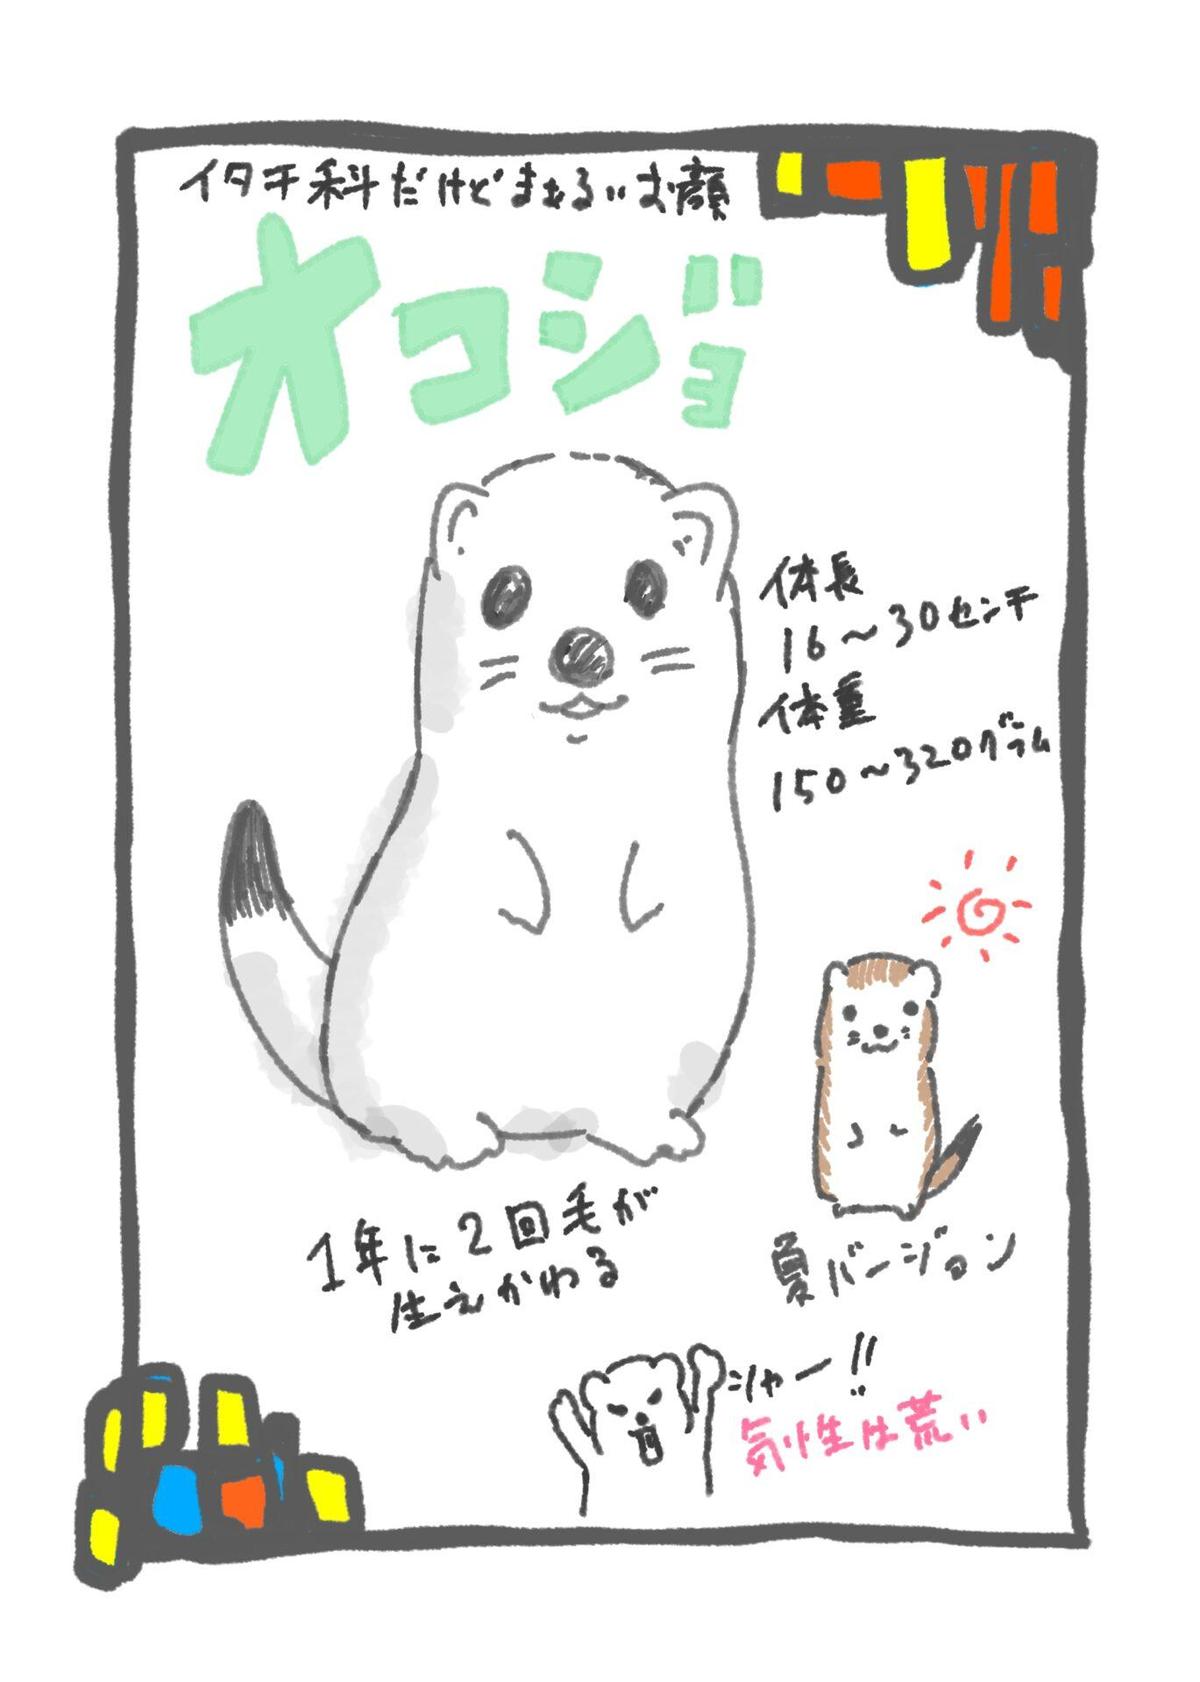 イタチ科だけどまぁるいお顔
オコジョ
体長
16～30センチ
体重
150～320グラム
1年に2回毛が
生えかわる
夏バージョン
シャー!!
気性は荒い